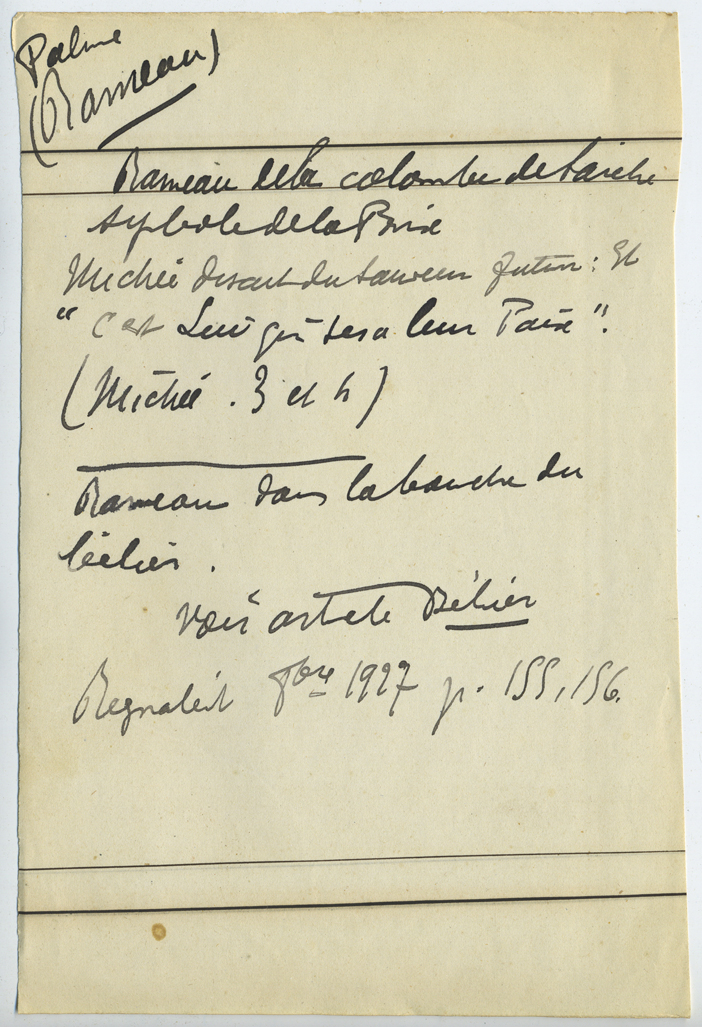 Palme
(Rameau)
Rameau de la colombe de l'arche
symbole de la Paix
Michée disait du sauveur futur : Et
"C'est Lui qui sera leur Paix".
(Michée . 3 et 4)
Rameau dans la bouche du
bélier .
Voir article Bélier
Regnabit 8bre 1927 p. 155, 156.